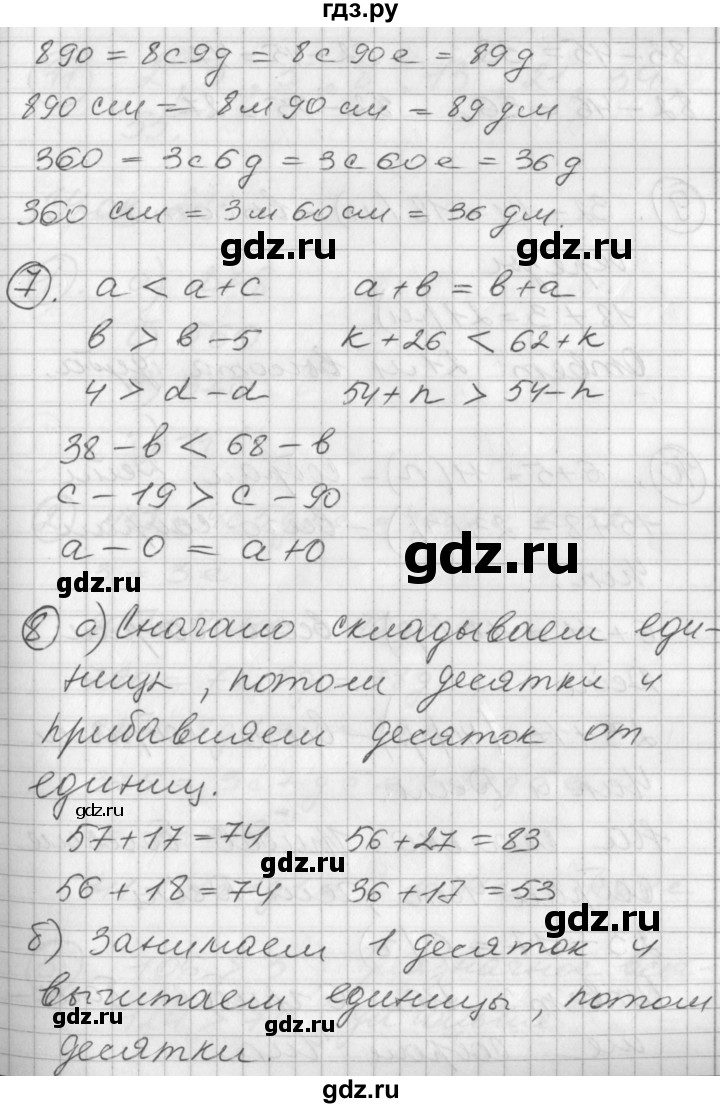 гдз.ру
890 = 8с9д = 8с 90е = 89д
890 см = 8м 90 см = 89 дм
360 = 3с6д = 3с 60е = 36д
360 см = 3м 60 см = 36 дм.
gdz.ru gdz.ru
7. a < a+c a+в = в+a
в > в-5 к+26 < 62+к
4 > d-d 54+n > 54-n
38-в < 68-в
c-19 > c-90
a-0 = a+0
gdz.ru
gdz.ru
8 а) Сначало складываем еди-
ницы, потом десятки и
прибавляем десяток от
единиц.
gdz.ru
57+17=74 56+27=83
gdz.ru
56+18=74 36+17=53
gdz.ru
б) Занимаем 1 десяток и
вычитаем единицы, потом
gdz.ru gdz.ru
десятки.
gdz.ru